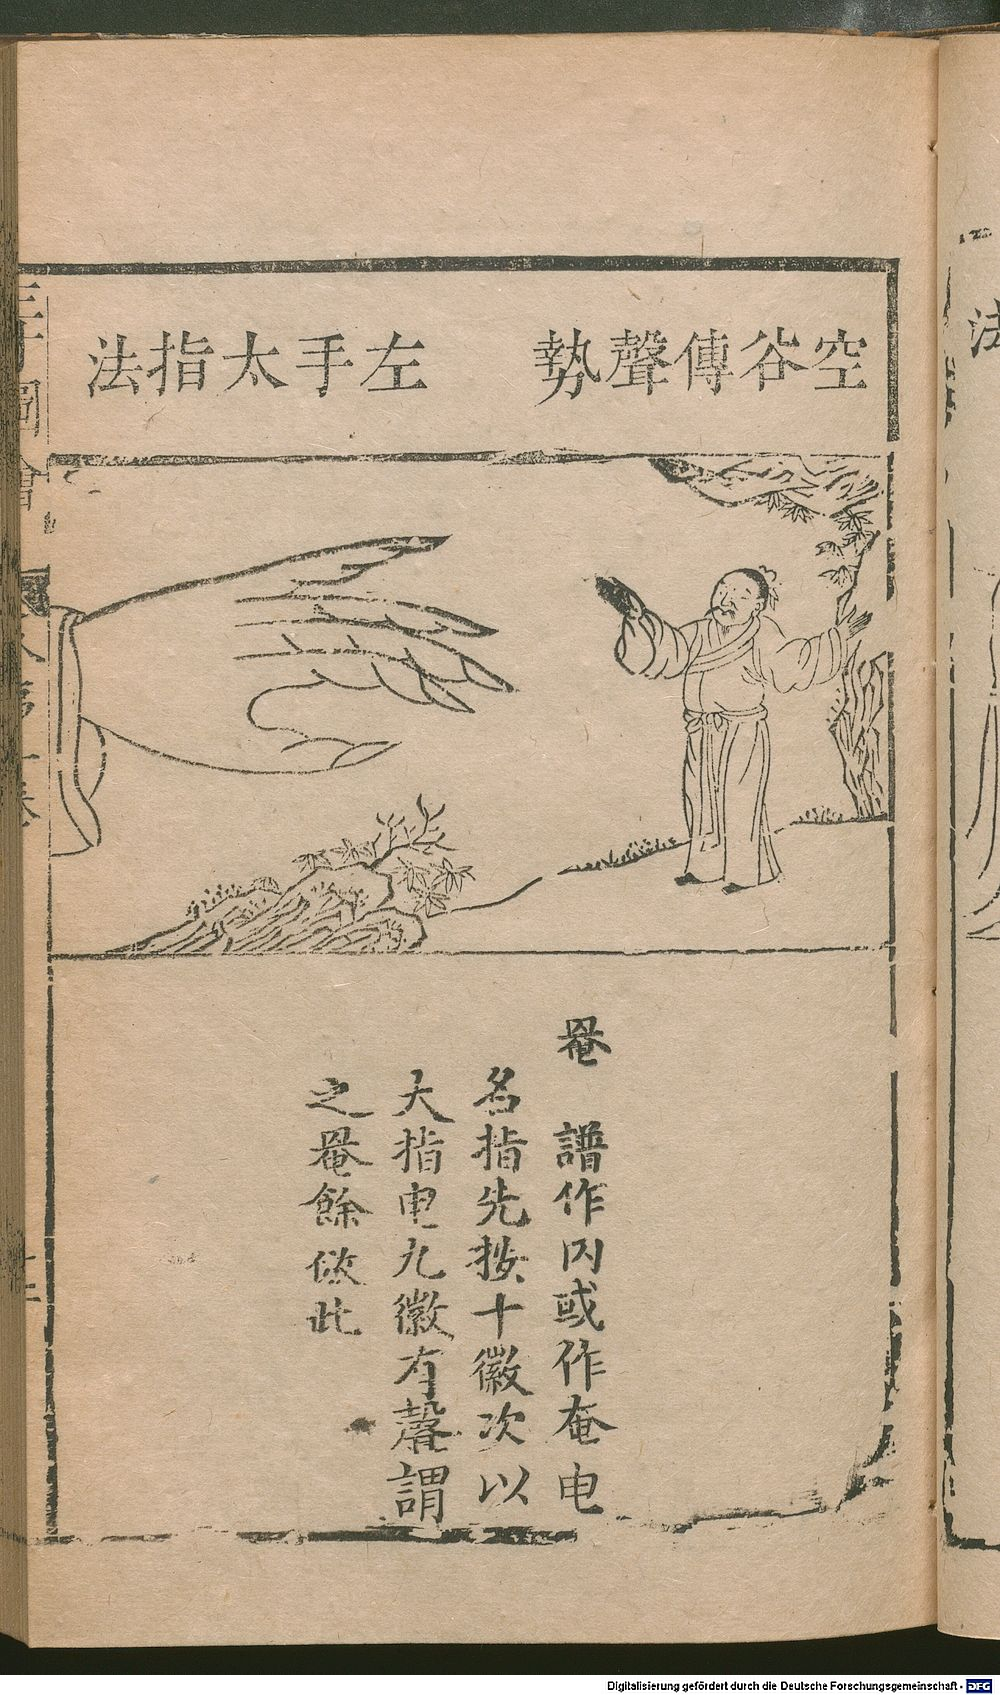 空谷傳聲勢
左手太指法
罨
譜作內或作奄电
名指先按十徽次以
大指电九徽有聲謂
之罨餘倣此
三才圖會
法
Digitalisierung gefördert durch die Deutsche Forschungsgemeinschaft - DFG